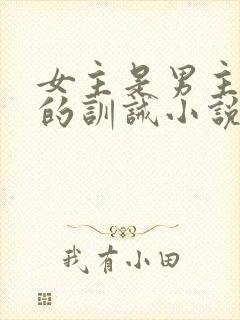 女主是男主
的訓誡小說
我有小田